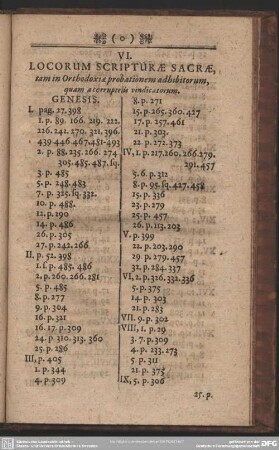 (o)
VI.
LOCORUM SCRIPTURÆ SACRÆ,
tam in Orthodoxiæ probationem adhibitorum,
quam a corruptelis vindicatorum.
GENESIS.
I. pag. 27. 398
1. p. 89. 166. 219. 222.
226. 241. 270. 311. 396.
439 446 467. 481. 493
2. p. 88. 235. 266. 274
305. 485. 487. sq.
3. p. 485
5. p. 248. 483
7. p. 325. sq. 332.
10. p. 488.
12. p. 290
14. p. 486
26. p. 305
27. p. 242. 266
II. p. 52. 398
1. s. p. 485. 486
2. p. 260. 266. 281
5. p. 485
8. p. 277
9. p. 304
16. p. 321
16. 17. p. 309
24. p. 310. 313. 360
25. p. 286
III, p. 405
1. p. 344
4. p. 309
8. p. 271
15. p. 265. 360. 427
17. p. 257. 461
21. p. 303.
22. p. 272. 373
IV, 1. p. 217. 260. 266. 279.
291. 457
5. 6. p. 312
8. p. 95. sq. 427. 458
15. p. 336
23. p. 279
25. p. 457
26. p. 113. 203
V. p. 399
22. p. 203. 290
29. p. 279. 457
32. p. 284. 337
VI, 2. p. 326. 332. 336
5. p. 375
14. p. 303
21. p. 283
VII. 9. p. 302
VIII, 1. p. 29
3. 7. p. 309
4. p. 133. 273
5. p. 311
21. p. 375
IX, 5. p. 306
25. p.